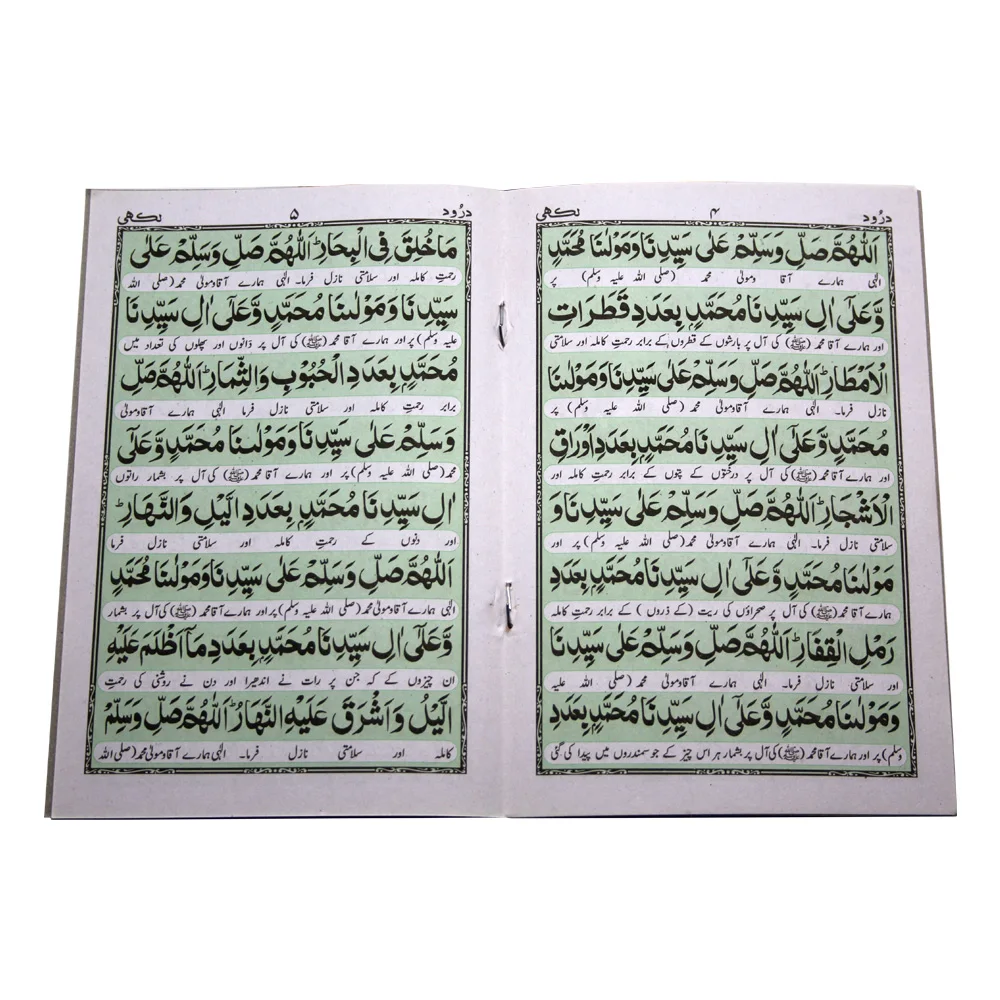 درُود ۴ لکھی
اَللّٰهُمَّ صَلِّ وَسَلِّمْ عَلٰى سَيِّدِنَا وَمَوْلٰىنَا مُحَمَّدٍ
الٰہی ہمارے آقا ومولیٰ محمد (صلی اللہ علیہ وسلم) پر
وَّعَلٰٓى اٰلِ سَيِّدِنَا مُحَمَّدٍۭ بِعَدَدِ قَطَرَاتِ
اور ہمارے آقا محمد (ﷺ) کی آل پر بارشوں کے قطروں کے برابر رحمتِ کاملہ اور سلامتی
الْاَمْطَارِؕ اَللّٰهُمَّ صَلِّ وَسَلِّمْ عَلٰى سَيِّدِنَا وَمَوْلٰىنَا
نازل فرما۔ الٰہی ہمارے آقا ومولیٰ محمد (صلی اللہ علیہ وسلم) پر
مُحَمَّدٍ وَّعَلٰٓى اٰلِ سَيِّدِنَا مُحَمَّدٍۭ بِعَدَدِ اَوْرَاقِ
اور ہمارے آقا محمد (ﷺ) کی آل پر درختوں کے پتوں کے برابر رحمتِ کاملہ اور
الْاَشْجَارِؕ اَللّٰهُمَّ صَلِّ وَسَلِّمْ عَلٰى سَيِّدِنَا وَ
سلامتی نازل فرما۔ الٰہی ہمارے آقا ومولیٰ محمد (صلی اللہ علیہ وسلم) پر اور
مَوْلٰىنَا مُحَمَّدٍ وَّعَلٰٓى اٰلِ سَيِّدِنَا مُحَمَّدٍۭ بِعَدَدِ
ہمارے آقا محمد (ﷺ) کی آل پر صحراؤں کی ریت (کے ذروں) کے برابر رحمتِ کاملہ
رَمْلِ الْقِفَارِؕ اَللّٰهُمَّ صَلِّ وَسَلِّمْ عَلٰى سَيِّدِنَا
اور سلامتی نازل فرما۔ الٰہی ہمارے آقا ومولیٰ محمد (صلی اللہ علیہ
وَمَوْلٰىنَا مُحَمَّدٍ وَّعَلٰٓى اٰلِ سَيِّدِنَا مُحَمَّدٍۭ بِعَدَدِ
وسلم) پر اور ہمارے آقا محمد (ﷺ) کی آل پر بشمار ہر اس چیز کے جو سمندروں میں پیدا کی گئی
درُود ۵ لکھی
مَا خُلِقَ فِى الْبِحَارِؕ اَللّٰهُمَّ صَلِّ وَسَلِّمْ عَلٰى
رحمتِ کاملہ اور سلامتی نازل فرما۔ الٰہی ہمارے آقا ومولیٰ محمد (صلی اللہ
سَيِّدِنَا وَمَوْلٰىنَا مُحَمَّدٍ وَّعَلٰٓى اٰلِ سَيِّدِنَا
علیہ وسلم) پر اور ہمارے آقا محمد (ﷺ) کی آل پر دانوں اور پھلوں کی تعداد میں
مُحَمَّدٍۭ بِعَدَدِ الْحُبُوْبِ وَالثِّمَارِؕ اَللّٰهُمَّ صَلِّ
برابر رحمتِ کاملہ اور سلامتی نازل فرما الٰہی ہمارے آقا ومولیٰ
وَسَلِّمْ عَلٰى سَيِّدِنَا وَمَوْلٰىنَا مُحَمَّدٍ وَّعَلٰٓى
محمد (صلی اللہ علیہ وسلم) پر اور ہمارے آقا محمد (ﷺ) کی آل پر بشمار راتوں
اٰلِ سَيِّدِنَا مُحَمَّدٍۭ بِعَدَدِ الَّيْلِ وَالنَّهَارِؕ
اور دنوں کے رحمتِ کاملہ اور سلامتی نازل فرما
اَللّٰهُمَّ صَلِّ وَسَلِّمْ عَلٰى سَيِّدِنَا وَمَوْلٰىنَا مُحَمَّدٍ
الٰہی ہمارے آقا ومولیٰ محمد (صلی اللہ علیہ وسلم) پر اور ہمارے آقا محمد (ﷺ) کی آل پر بشمار
وَّعَلٰٓى اٰلِ سَيِّدِنَا مُحَمَّدٍۭ بِعَدَدِ مَآ اَظْلَمَ عَلَيْهِ
ان چیزوں کے کہ جن پر رات نے اندھیرا اور دن نے روشنی کی رحمتِ
الَّيْلُ وَاَشْرَقَ عَلَيْهِ النَّهَارُؕ اَللّٰهُمَّ صَلِّ وَسَلِّمْ
کاملہ اور سلامتی نازل فرما۔ الٰہی ہمارے آقا ومولیٰ محمد (صلی اللہ